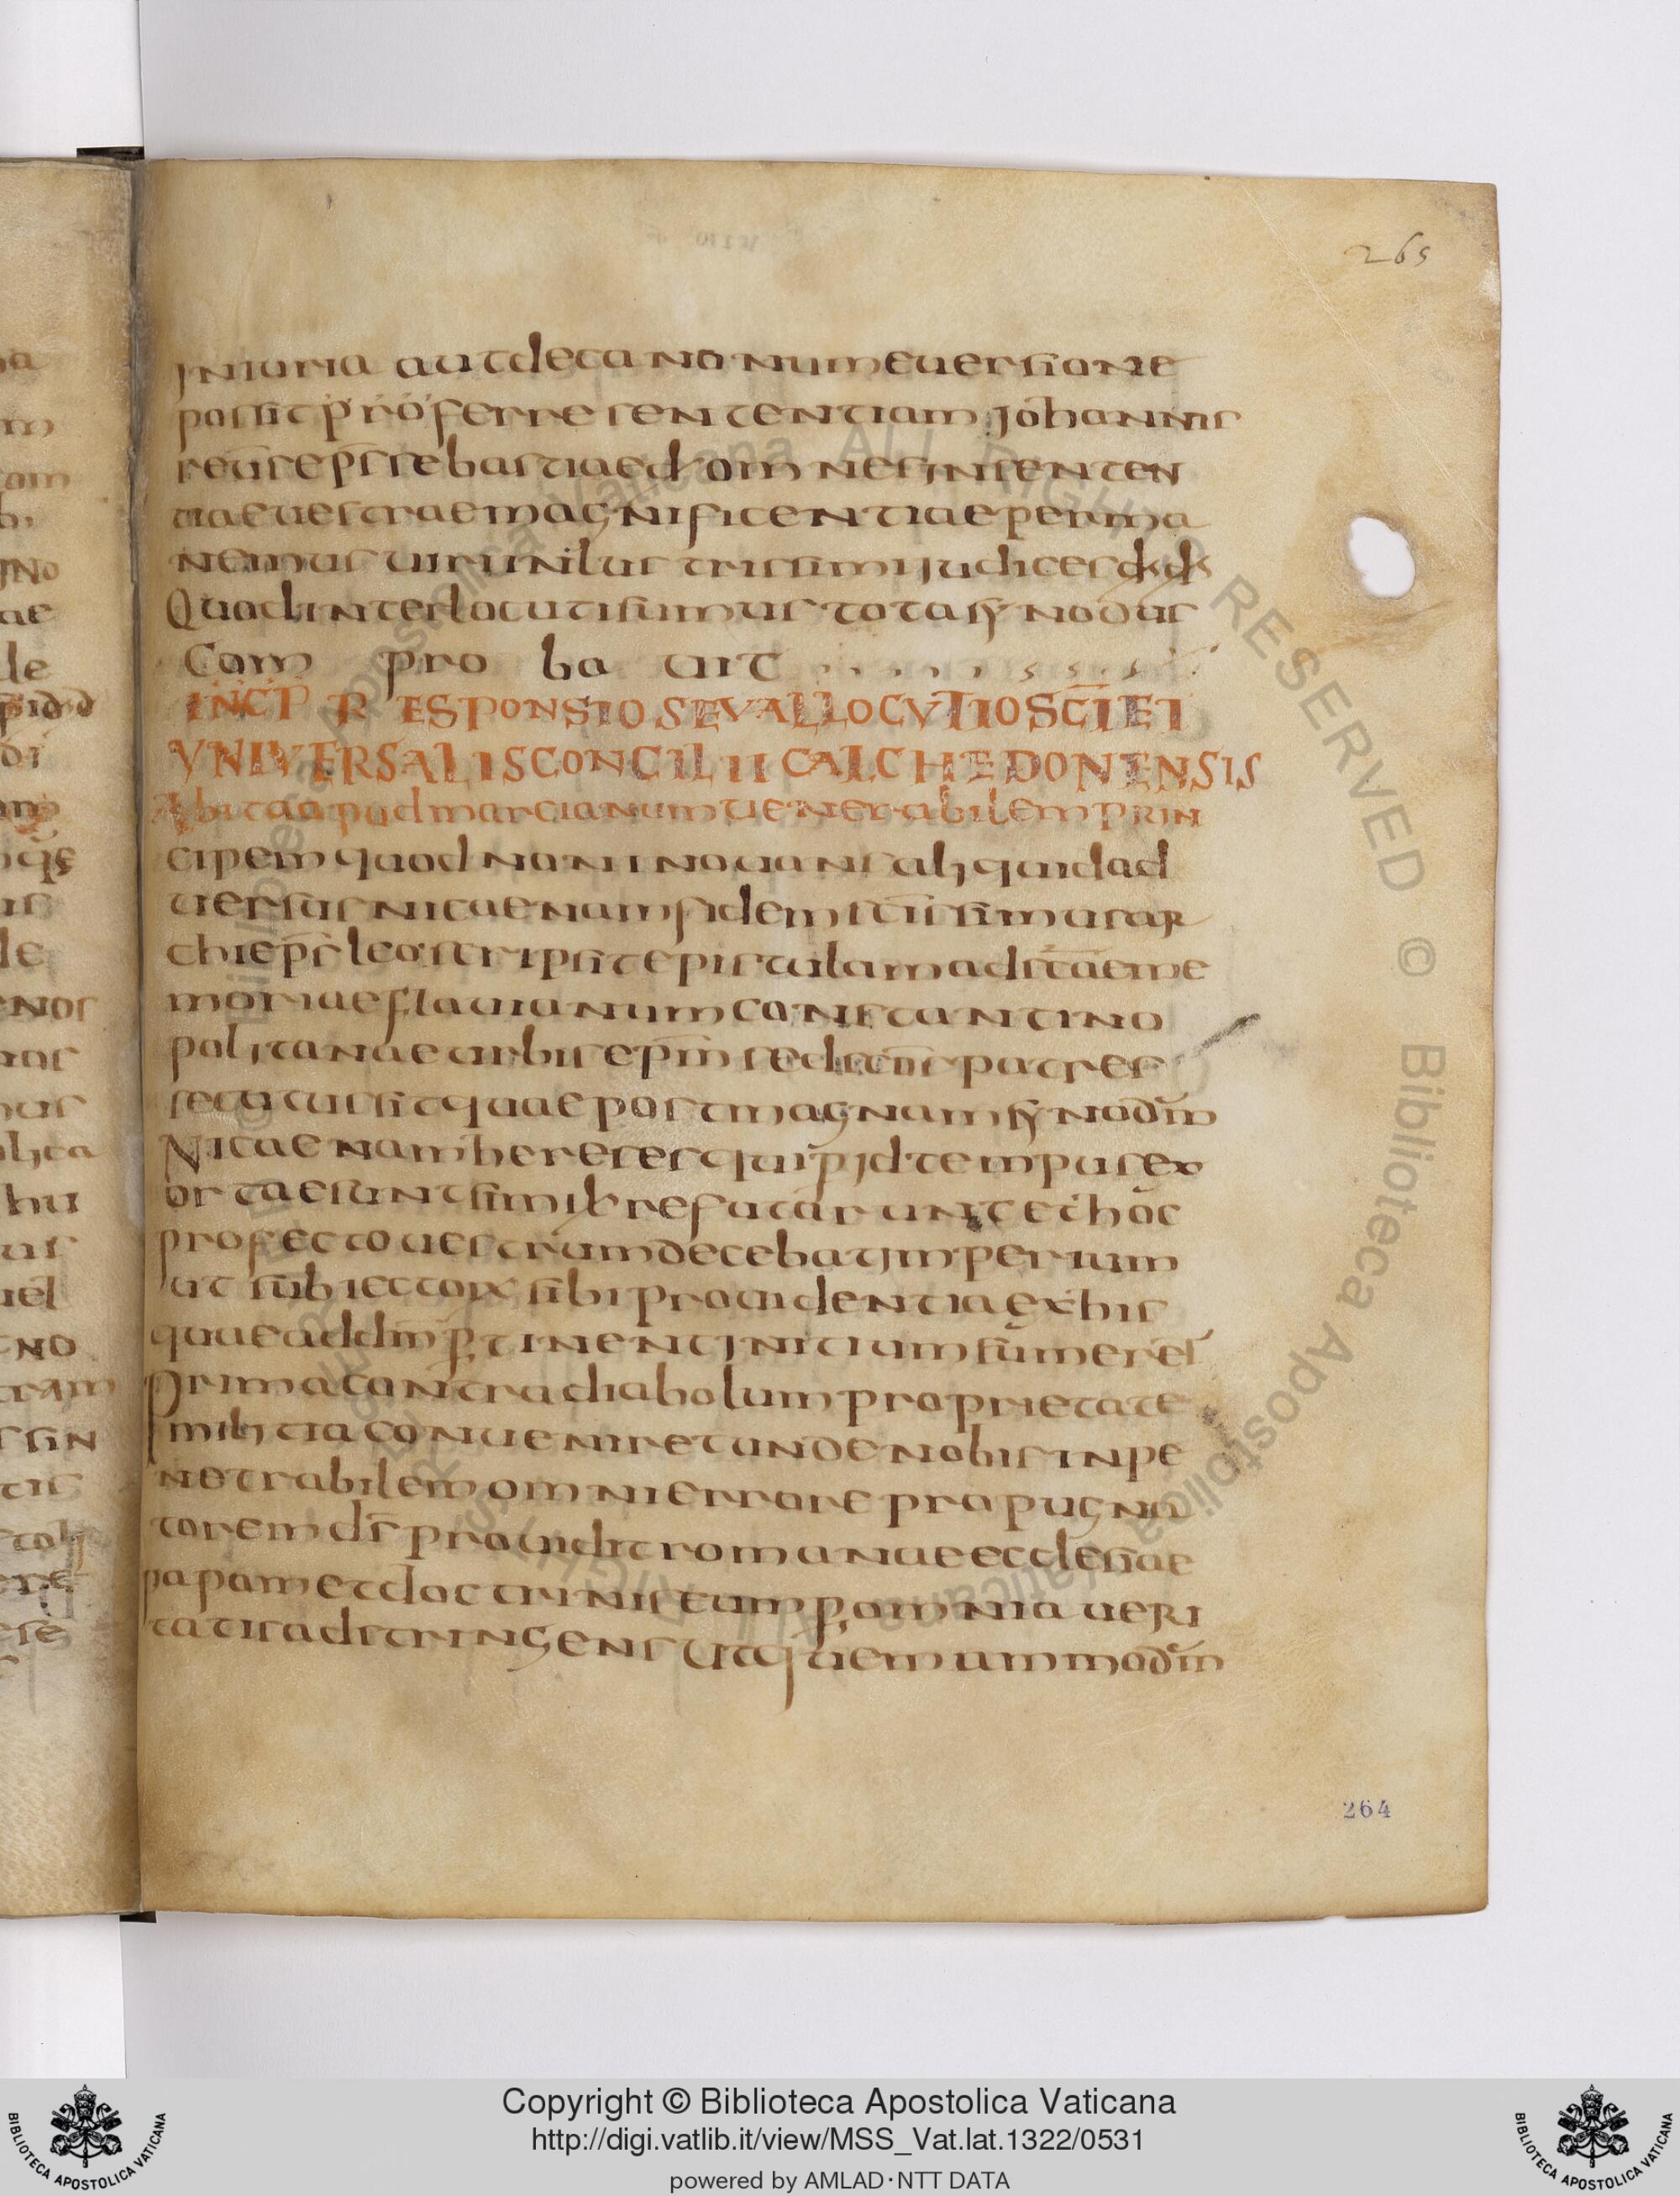 265
iniuria aut de canonum euersione
possit proferre sententiam iohannis
reū s ep̄s sebastiae & omnes in senten
tia uestrae magnificentiae perma
nemus uiri inlustrissimi iudices dd
Quod interlocuti sumus tota synodus
Com pro ba uit
INCP RESPONSIO SEV ALLOCVTIO SC̄I ET
VNIVERSALIS CONCILII CALCHEDONENSIS
Abita apud marcianum uenerabilem prin
cipem quod non inouans aliquid ad
uersus nicaenam fidem sc̄issimus ar
chiep̄s leo scripsit epistulam ad sc̄ae me
moriae flauianum constantino
politanae urbis ep̄m sed sc̄os patres
secutus sit quae post magnam synodū
Nicaenam hereses qui p id tempus ex
ortae sunt simili& refutarunt et hoc
profecto uestrum decebat imperium
ut subiectorꝝ sibi prouidentia ex his
quae ad dm̄ ꝑtinent initium sumeret
Prima contra diabolum proprietate
militia conuenire t unde nobis inpe
netrabilem omni errore propugna
torem dS prouidit romanae ecclesiae
papam et doctrinis eum ꝑ omnia ueri
tatis adstringens Ut quemammodū
264
Copyright © Biblioteca Apostolica Vaticana
http://digi.vatlib.it/view/MSS_Vat.lat.1322/0531
powered by AMLAD·NTT DATA
BIBLIOTECA APOSTOLICA VATICANA
BIBLIOTECA APOSTOLICA VATICANA